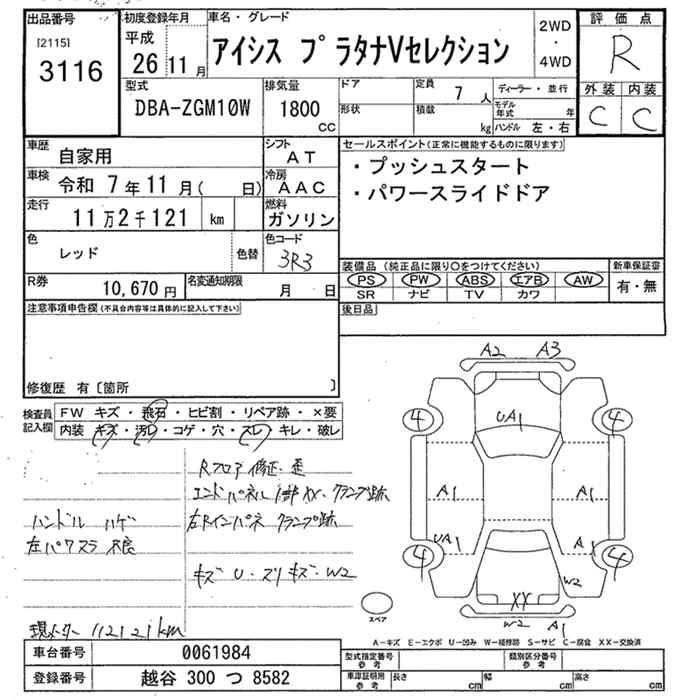 出品番号
[2115]
3116
初度登録年月
平成
26 11 月
車名・グレード
アイシス プラタナVセレクション
2WD
・
4WD
評価点
R
外装 内装
C C
型式
DBA-ZGM10W
排気量
1800
cc
ドア
形状
定員
7 人
積載
kg
ディーラー・並行
モデル年式 年
ハンドル 左・右
車歴
自家用
シフト
AT
車検
令和 7年11月( 日)
冷房
AAC
走行
11万2千121 km
燃料
ガソリン
色
レッド
色替
色コード
3R3
R券
10,670 円
名変通知期限
月 日
セールスポイント(正常に機能するものに限ります)
・プッシュスタート
・パワースライドドア
装備品 (純正品に限り○をつけてください)
PS PW ABS エアB AW
SR ナビ TV カワ
新車保証書
有・無
後日品
注意事項申告欄(不具合内容等は具体的に記入して下さい)
修復歴 有〔箇所 〕
検査員記入欄
FW キズ・飛石・ヒビ割・リペア跡・×要
内装 キズ・汚れ・コゲ・穴・スレ・キレ・破レ
Rフロア 修正・歪
エンドパネル 1部XX・クランプ跡
ハンドル ハゲ
左Rインパネ クランプ跡
左パワスラ 不良
キズ U・スリキズ・W2
現メーター 112121km
A2 A3
4 4
UA1
A1 A1
UA1 A1
4 4
W2
XX
W2 A1
スペア
A-キズ E-エクボ U-凹み W-補修跡 S-サビ C-腐食 XX-交換済
車台番号 0061984
登録番号 越谷 300 つ 8582
型式指定番号 参考
類別区分番号 参考
車庫証明用 参考
長さ cm
幅 cm
高さ cm